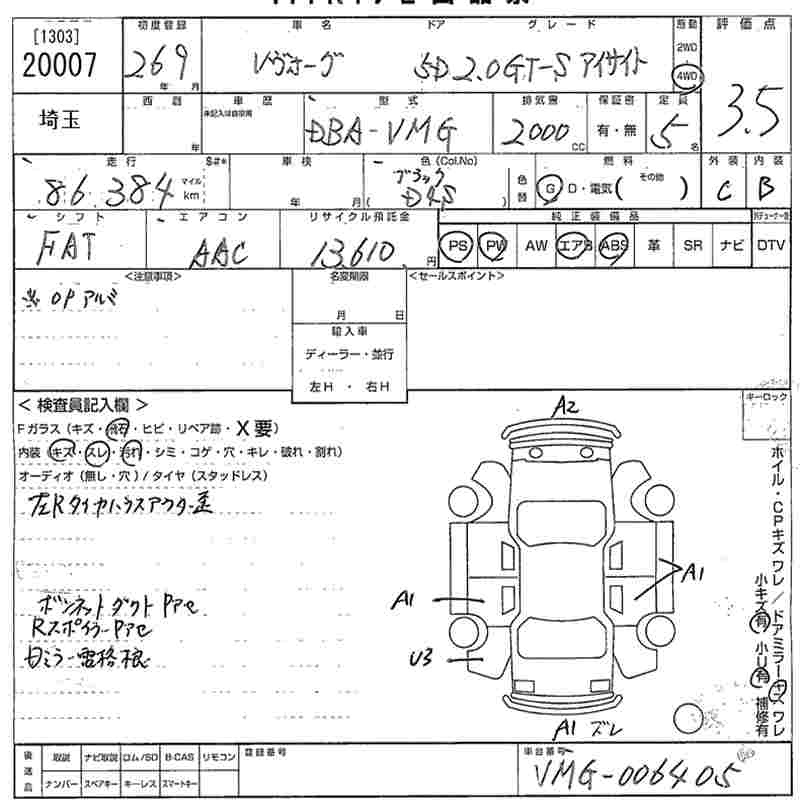 [1303]
20007
初度登録
車名
ドア
グレード
駆動
評価点
26 9
年 月
レヴォーグ
5D 2.0GT-S アイサイト
2WD
4WD
3.5
埼玉
西暦
年
車歴
未記入は自家用
型式
DBA-VMG
排気量
2000
CC
保証書
有・無
定員
5
名
走行
$#*
86,384
マイル
km
車検
年 月
色(Col.No)
ブラック
( D4S )
色替
燃料
G D・電気( その他 )
外装
C
内装
B
シフト
FAT
エアコン
AAC
リサイクル預託金
13,610
円
純正装備品
PS PW AW エアB ABS 革 SR ナビ DTV
<注意事項>
※ OPアルミ
名変期限
月 日
輸入車
ディーラー・並行
左H ・ 右H
<セールスポイント>
<検査員記入欄>
Fガラス(キズ・飛石・ヒビ・リペア跡・X要)
内装(キズ・スレ・汚れ・シミ・コゲ・穴・キレ・破れ・割れ)
オーディオ(無し・穴)/タイヤ(スタッドレス)
左Rタイヤハウスアウター歪
ボンネットダクトPアセ
RスポイラーPアセ
キーロック
A2
A1
A1
U3
A1 ズレ
ホイル・CPキズ ワレ / ドアミラーキズ ワレ
小キズ有 小U有 補修有
後送品
取説
ナビ取説
ロム/SD
B-CAS
リモコン
ナンバー
スペアキー
キーレス
スマートキー
登録番号
車台番号
VMG-006405